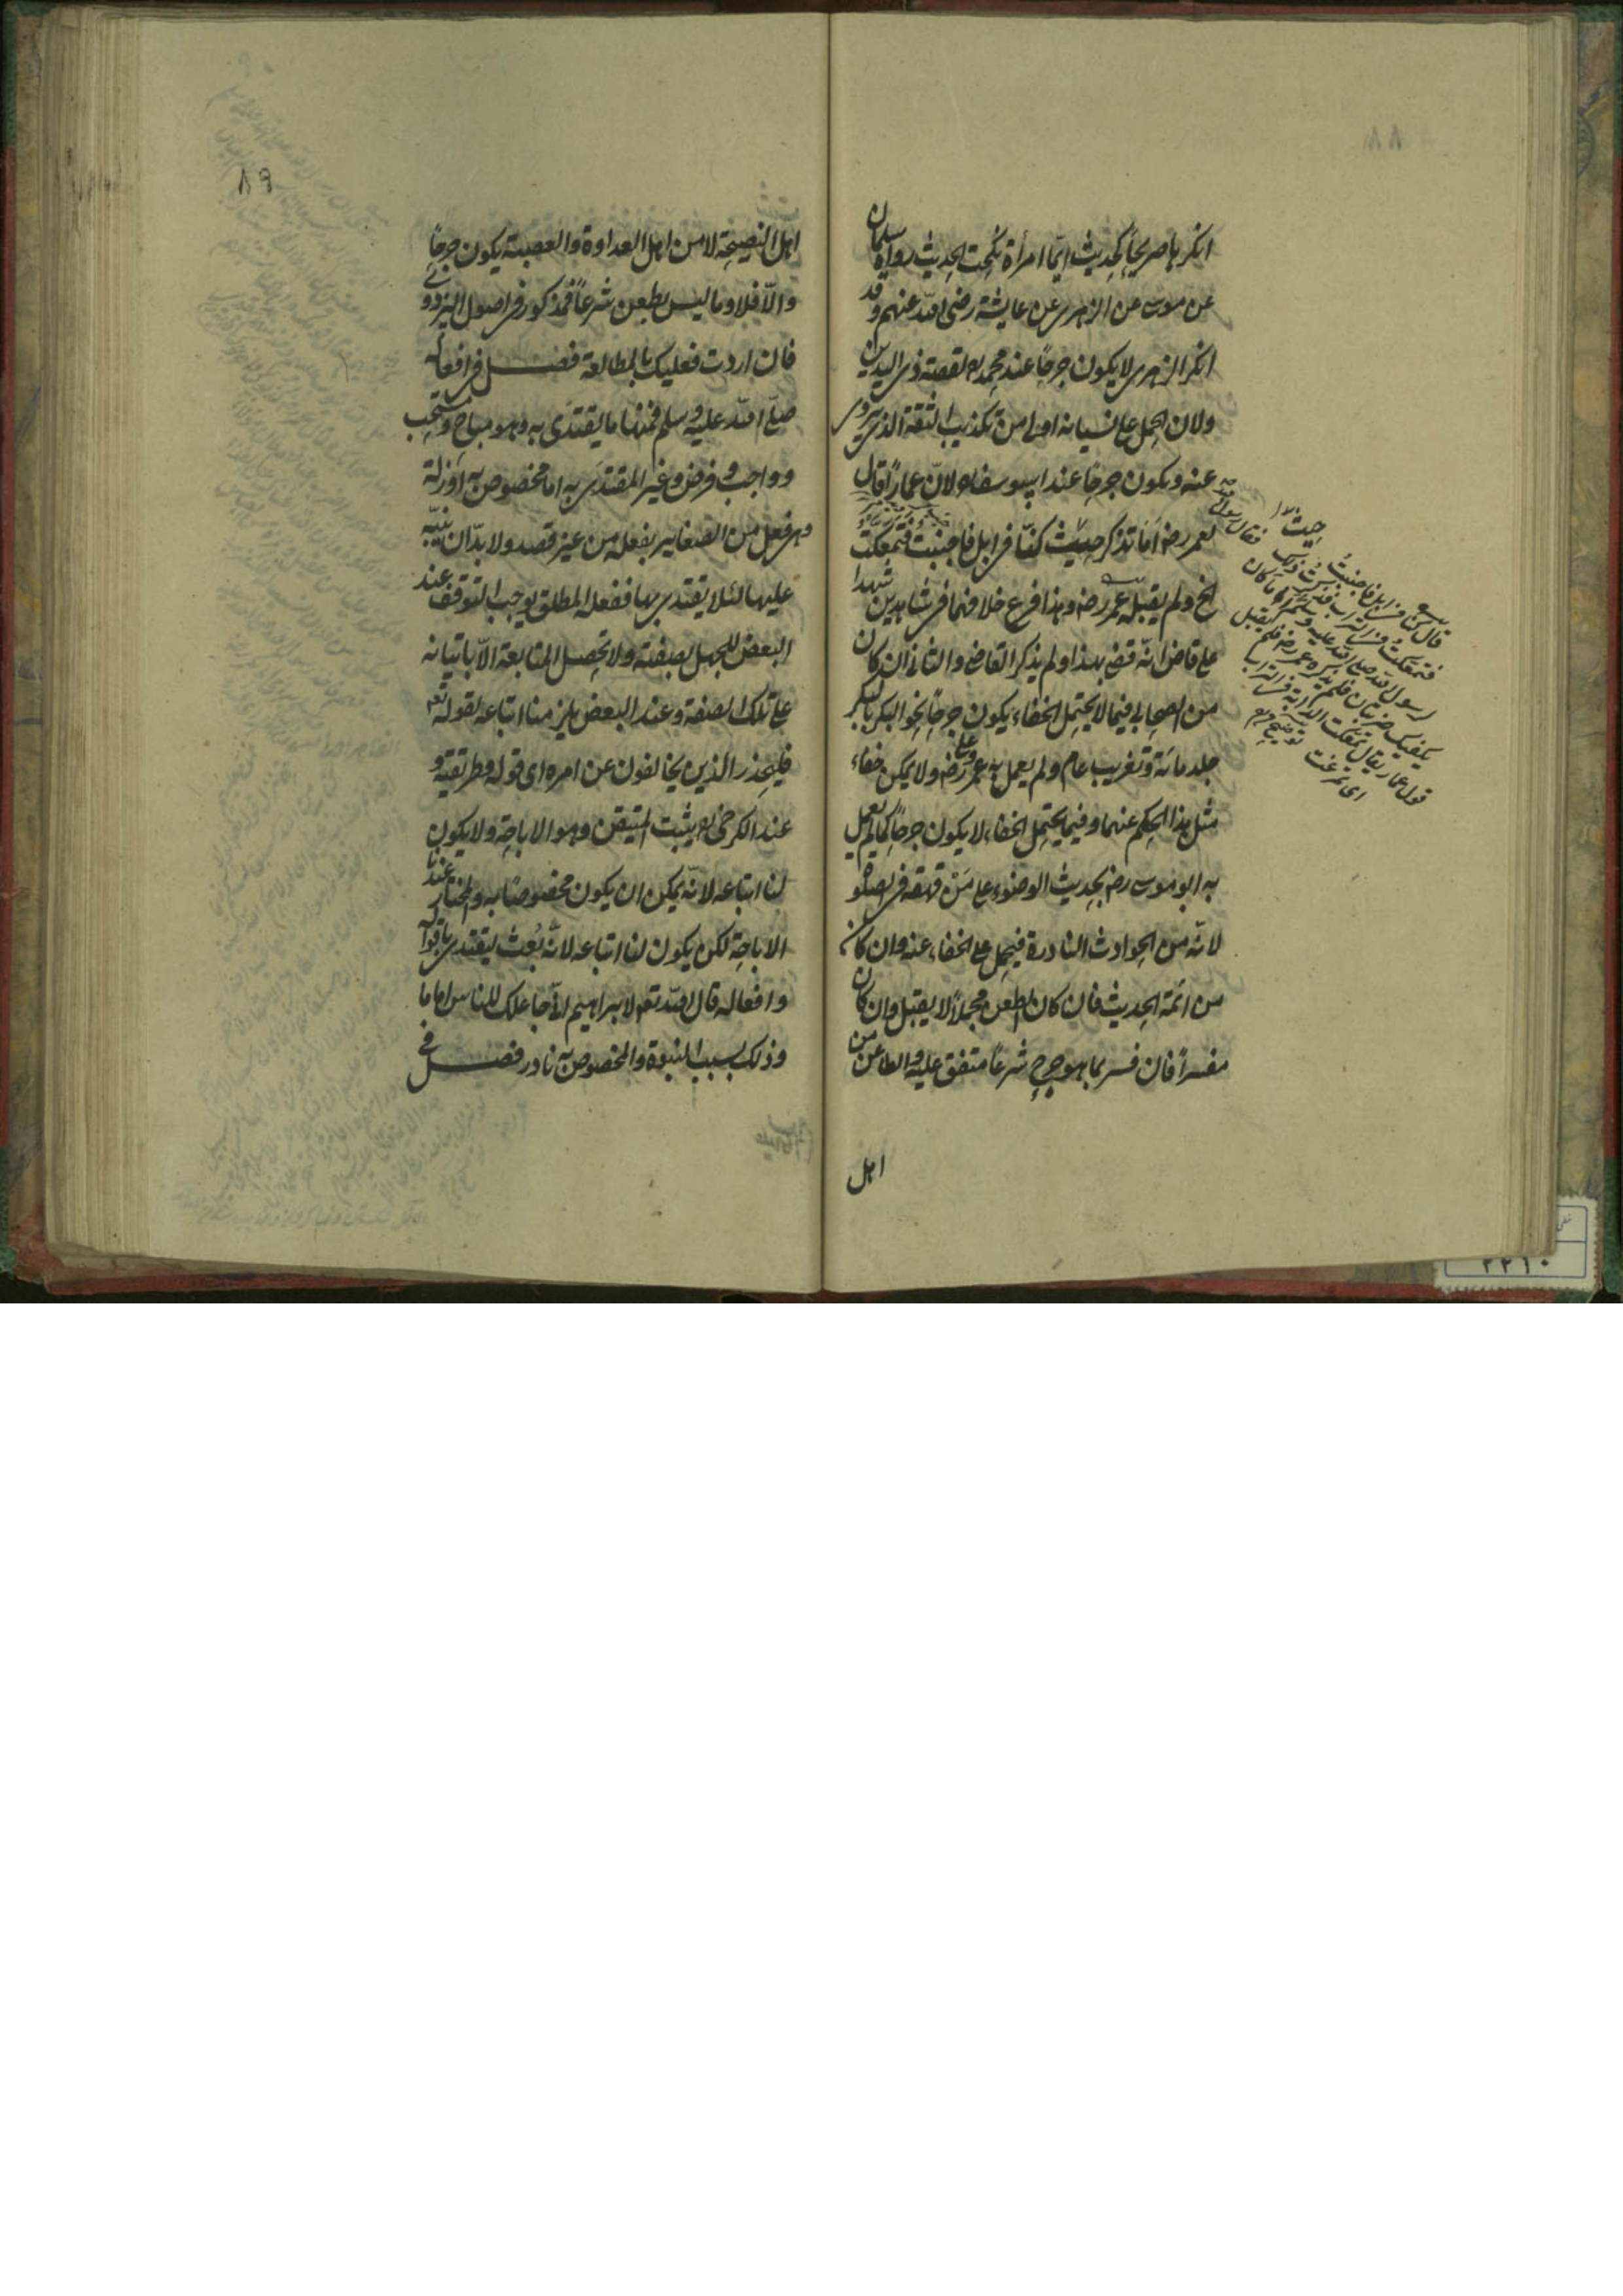 ٨٨
انكرها صريحاً كحديث ايّما امرأة نُكحت الحديث رواه سليمان
عن موسى عن الزهرى عن عايشة رضى الله عنهم وقد
انكر الزهرى لا يكون جرحاً عند محمد ره لقصة ذى اليدين
ولان الحمل على نسيانه اولى من تكذيب الثقة الذى يروى
عنه ويكون جرحاً عند ابيوسف ره لانّ عماراً قال
لعمر رضه أَمَا تذكر حيث كنّا فى ابل فاجنبتُ فتمعكت
الخ ولم يقبله عمر رضه وهذا فرع خلافهما فى شاهدين شهدا
على قاض انّه قضى بهذا ولم يذكر القاضى والثانى ان كان
من الصحابى فيما لا يحتمل الخفاء يكون جرحاً نحو البكر بالبكر
جلد مائة وتغريب عام ولم يعمل به عمر وعلى رضه ولا يمكن خفاء
مثل هذا الحكم عنهما وفيما يحتمل الخفاء لا يكون جرحاً كما لم يعمل
به ابو موسى رضه بحديث الوضوء على مَنْ قهقه فى الصلوة
لانّه من الحوادث النادرة فيحمل على الخفاء عنه وان كان
من ائمة الحديث فان كان الطعن مجملاً لا يقبل وان كان
مفسراً فان فسر بما هو جرح شرعاً متفق عليه والطاعن من
اهل
قال كنا فى ابل فاجنبتُ
فتمعكتُ فى التراب فذكرت ذلك
لرسول الله صلى الله عليه وسلم فقال اما كان
يكفيك ضربتان فلم يذكره عمر رضه فلم يقبل
قول عمار يقال تمعكت الدابة فى التراب
اى تمرغت توضيح
٨٩
اهل النصيحة لا من اهل العداوة والعصبية يكون جرحاً
والّا فلا وما ليس بطعن شرعاً فمذكور فى اصول البزدوى
فان اردت فعليك بالمطالعة فصل فى افعاله
صلى الله عليه وسلم فمنها ما يقتدى به وهو مباح ومستحب
وواجب وفرض وغير المقتدى به اما مخصوص به او زلة
وهى فعل من الصغاير يفعله من غير قصد ولا بدّ ان ينبّه
عليها لئلا يقتدى بها ففعله المطلق يوجب التوقف عند
البعض للجهل بصفته ولا تحصل المتابعة الّا باتيانه
على تلك الصفة وعند البعض يلزمنا اتباعه لقوله تعه
فليحذر الذين يخالفون عن امره اى قوله وطريقته و
عند الكرخى ره يثبت المتيقن وهو الاباحة ولا يكون
لنا اتباعه لانّه يمكن ان يكون مخصوصاً به والمختار عندنا
الاباحة لكن يكون لنا اتباعه لانّه بُعث ليقتدى باقواله
وافعاله قال الله تعه لابراهيم انى جاعلك للناس اماما
وذلك بسبب النبوة والمخصوص به نادر فصل فى